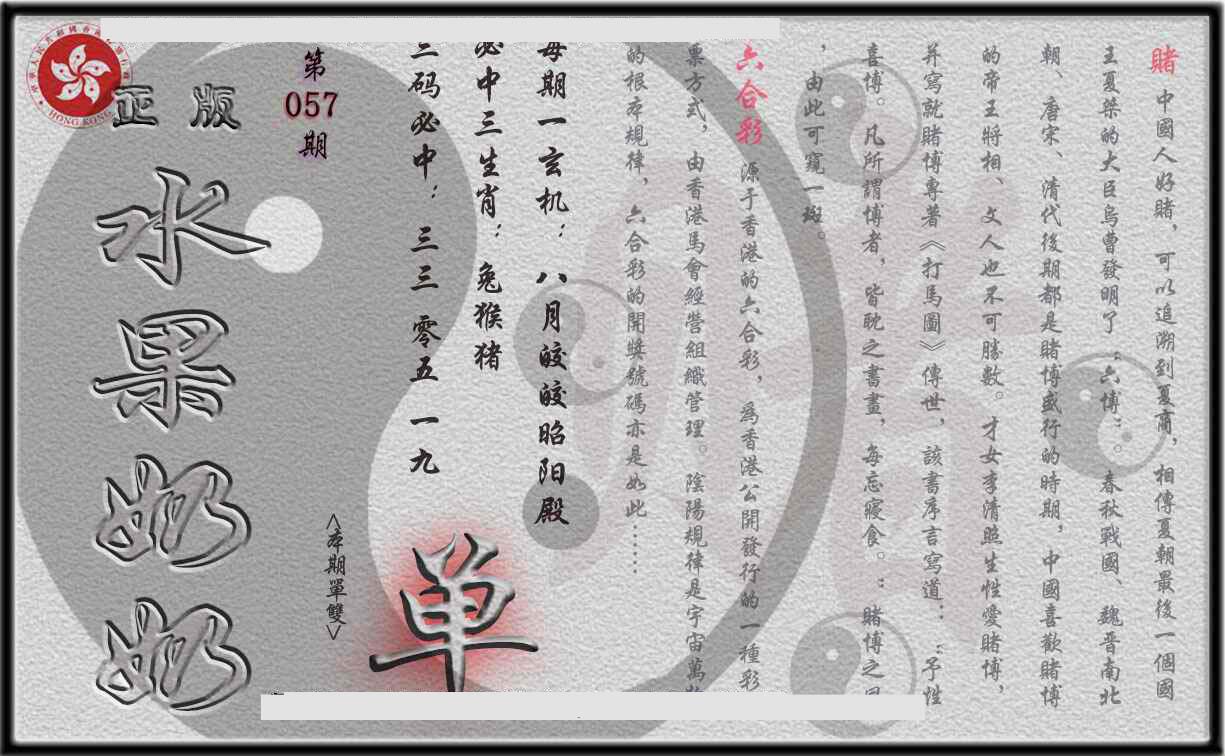 賭 中國人好賭，可以追溯到夏商，相傳夏朝最後一個國
王夏桀的大臣烏曹發明了“六博”。春秋戰國、魏晋南北
朝、唐宋、清代後期都是賭博盛行的時期，中國喜歡賭博
的帝王將相、文人也不可勝數。才女李清照生性愛賭博，
并寫就賭博專著《打馬圖》傳世，該書序言寫道：“予性
喜博。凡所謂博者，皆耽之晝畫，每忘寢食。”賭博之
，由此可窺一斑。
六合彩 源于香港的六合彩，為香港公開發行的一種彩
票方式，由香港馬會經營組織管理。陰陽規律是宇宙萬
的根本規律，六合彩的開獎號碼亦是如此……
每期一玄机：八月皎皎昭阳殿
必中三生肖：兔猴猪
三码必中：三三 零五 一九
第
057
期
<本期單雙>
单
正版
水果奶奶
HONG KONG